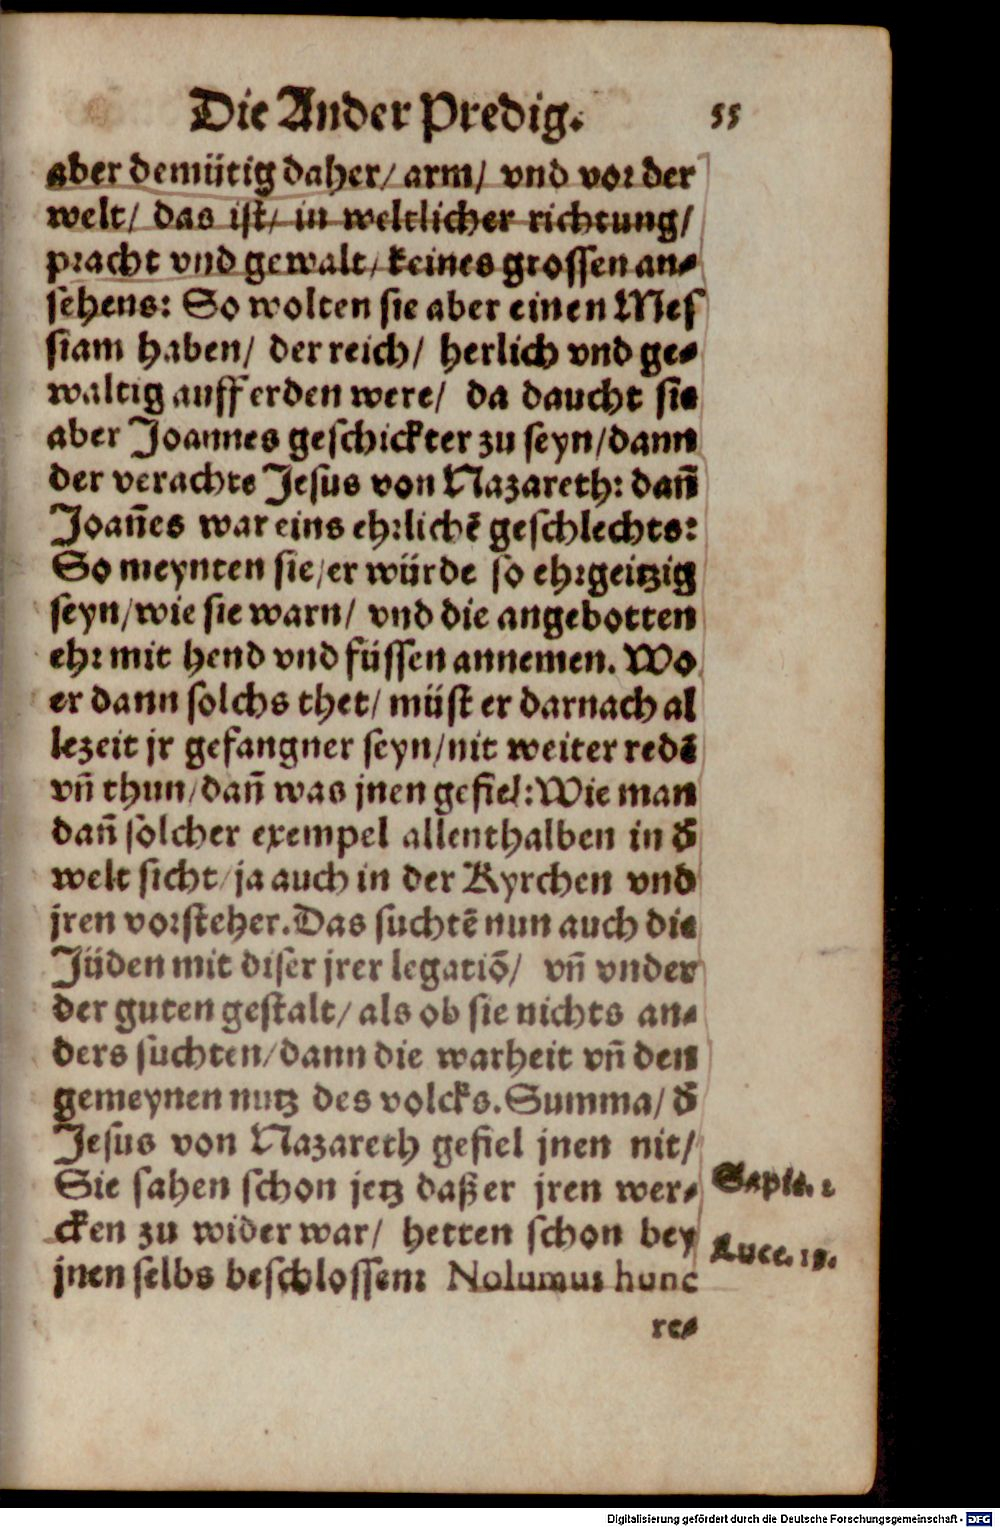 Die Ander Predig. 55
aber demütig daher/ arm/ vnd vor der
welt/ das ist/ in weltlicher richtung/
pracht vnd gewalt/ keines grossen an-
sehens: So wolten sie aber einen Mes
siam haben/ der reich/ herlich vnd ge-
waltig auff erden were/ da daucht sie
aber Joannes geschickter zu seyn/ dann
der verachte Jesus von Nazareth: dañ
Joañes war eins ehrlichẽ geschlechts:
So meynten sie/ er würde so ehrgeitzig
seyn/ wie sie warn/ vnd die angebotten
ehr mit hend vnd füssen annemen. Wo
er dann solchs thet/ müst er darnach al
lezeit jr gefangner seyn/ nit weiter redẽ
vñ thun/ dañ was jnen gefiel: Wie man
dañ solcher exempel allenthalben in d̃
welt sicht/ ja auch in der Kyrchen vnd
jren vorsteher. Das suchtẽ nun auch die
Jüden mit diser jrer legatiõ/ vñ vnder
der guten gestalt/ als ob sie nichts an-
ders suchten/ dann die warheit vñ den
gemeynen nutz des volcks. Summa/ d̃
Jesus von Nazareth gefiel jnen nit/
Sie sahen schon jetz daß er jren wer-
cken zu wider war/ hetten schon bey
jnen selbs beschlossen: Nolumus hunc
re-
Sapie. 2
Luce. 19.
Digitalisierung gefördert durch die Deutsche Forschungsgemeinschaft - DFG